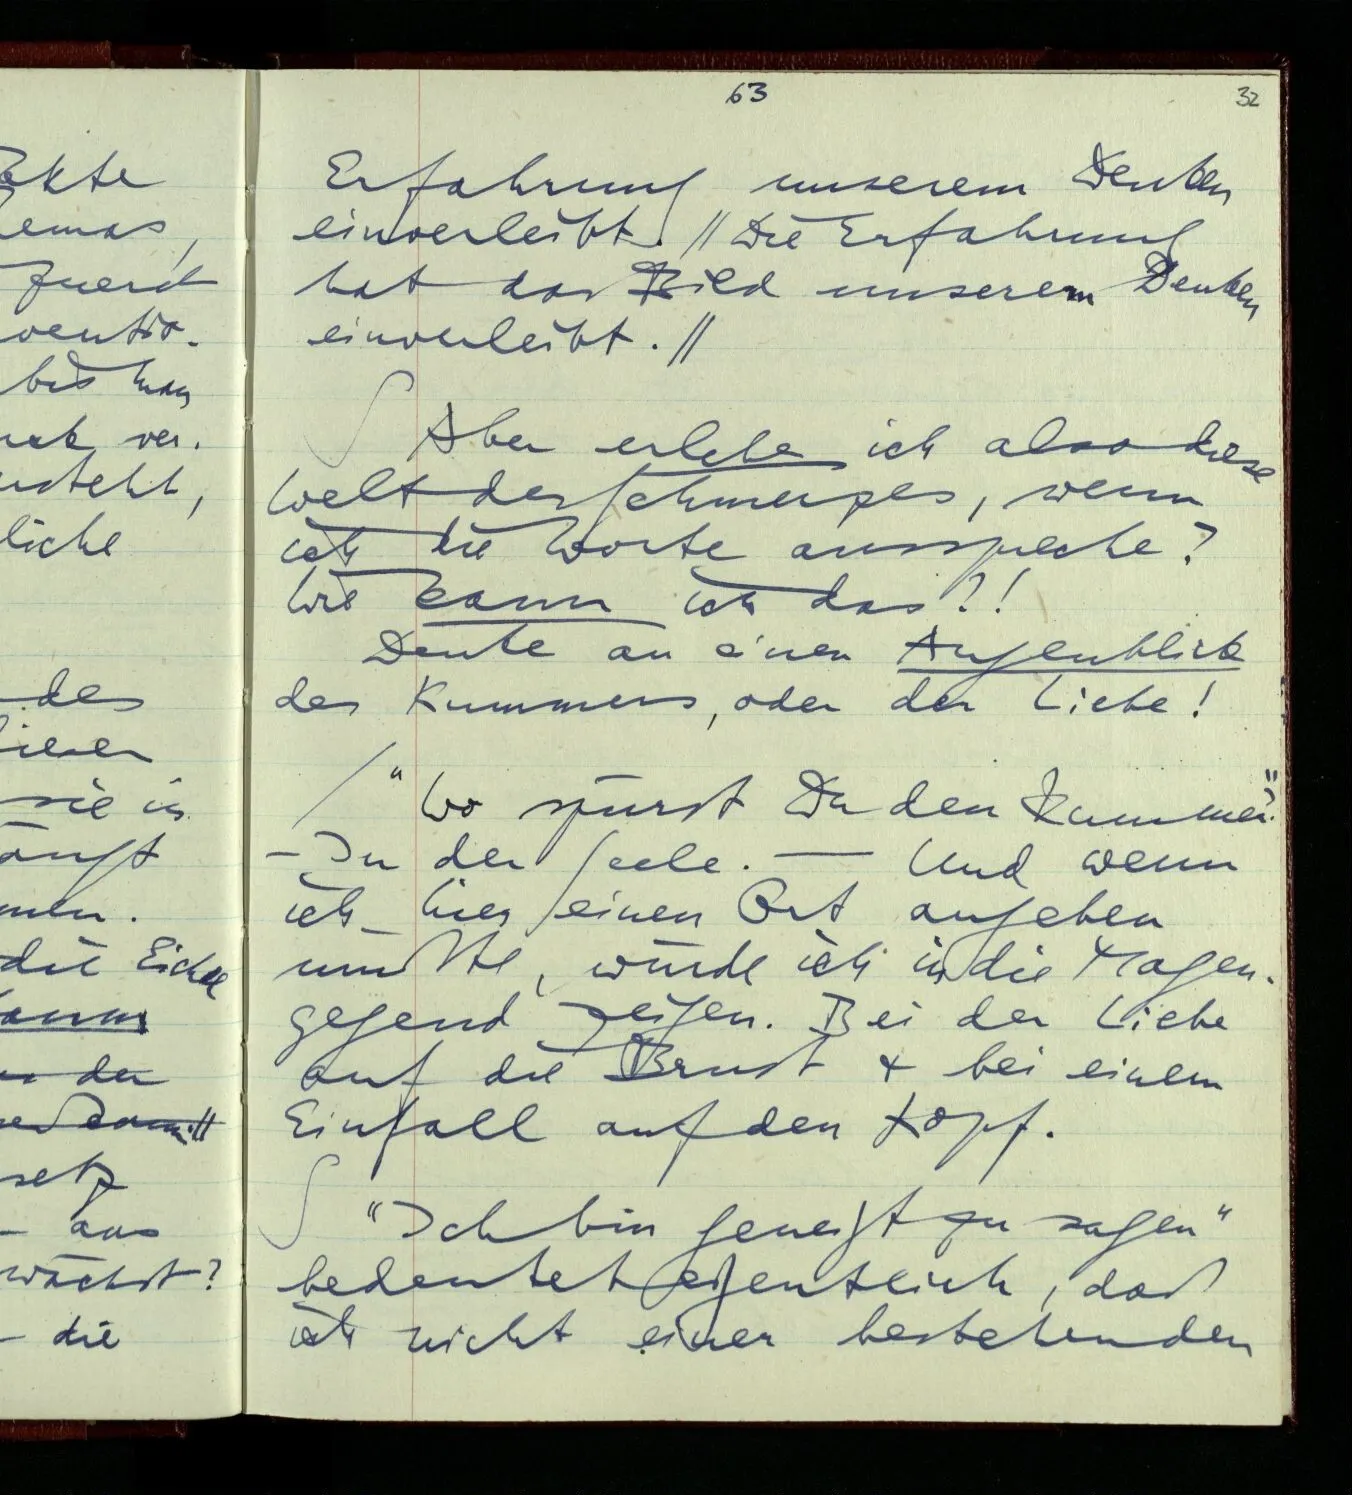 63
32
Erfahrung unserem Denken
einverleibt. // Die Erfahrung
hat das Bild unserem Denken
einverleibt. //
∫ Aber erlebe ich also diese
Welt des Schmerzes, wenn
ich die Worte ausspreche?
Wie kann ich das?!
Denke an einen Augenblick
des Kummers, oder der Liebe!
/ "Wo spürst Du den Kummer?"
– In der Seele. — Und wenn
ich hier einen Ort angeben
müßte, würde ich in die Magen-
gegend zeigen. Bei der Liebe
auf die Brust & bei einem
Einfall auf den Kopf.
∫ "Ich bin geneigt zu sagen"
bedeutet eigentlich, daß
ich nicht einer bestehenden
emas,
zuerst
ventio-
bis man
ver-
steht,
liche
des
sie in
die Eiche
der
setz
– aus
wächst?
– die